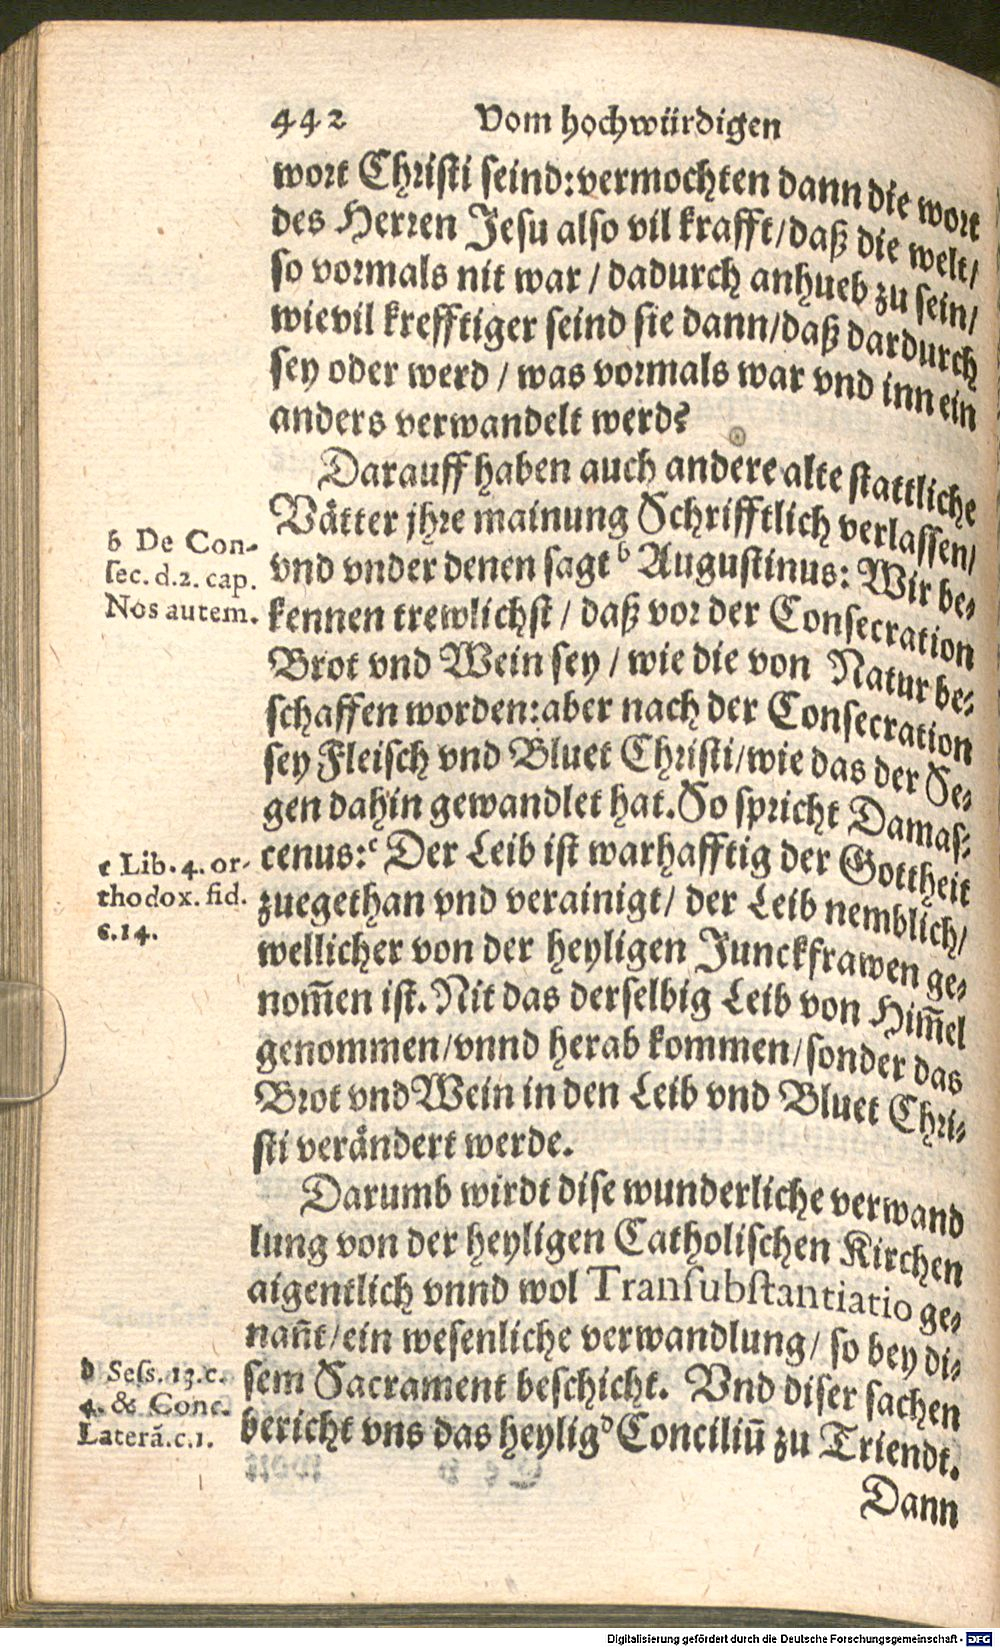 442 Vom hochwürdigen
wort Christi seind: vermochten dann die wort
des Herren Jesu also vil krafft/ daß die welt/
so vormals nit war / dadurch anhueb zu sein/
wievil krefftiger seind sie dann/ daß dardurch
sey oder werd / was vormals war vnd inn ein
anders verwandelt werd?
Darauff haben auch andere alte stattliche
Vätter jhre mainung Schrifftlich verlassen/
b De Con-
sec. d. 2. cap.
Nos autem.
vnd vnder denen sagt b Augustinus: Wir be-
kennen trewlichst / daß vor der Consecration
Brot vnd Wein sey / wie die von Natur be-
schaffen worden: aber nach der Consecration
sey Fleisch vnd Bluet Christi/ wie das der Se-
gen dahin gewandlet hat. So spricht Damas-
c Lib. 4. or-
thodox. fid.
c. 14.
cenus: c Der Leib ist warhafftig der Gottheit
zuegethan vnd verainigt/ der Leib nemblich/
wellicher von der heyligen Junckfrawen ge-
nom̄en ist. Nit das derselbig Leib von Him̄el
genommen/ vnnd herab kommen/ sonder das
Brot vnd Wein in den Leib vnd Bluet Chri-
sti verändert werde.
Darumb wirdt dise wunderliche verwand
lung von der heyligen Catholischen Kirchen
aigentlich vnnd wol Transubstantiatio ge-
nañt/ ein wesenliche verwandlung/ so bey di-
d Sess. 13. c.
4. & Conc.
Laterã. c. 1.
sem Sacrament beschicht. Vnd diser sachen
bericht vns das heylig d Conciliũ zu Triendt.
Dann
Digitalisierung gefördert durch die Deutsche Forschungsgemeinschaft - DFG